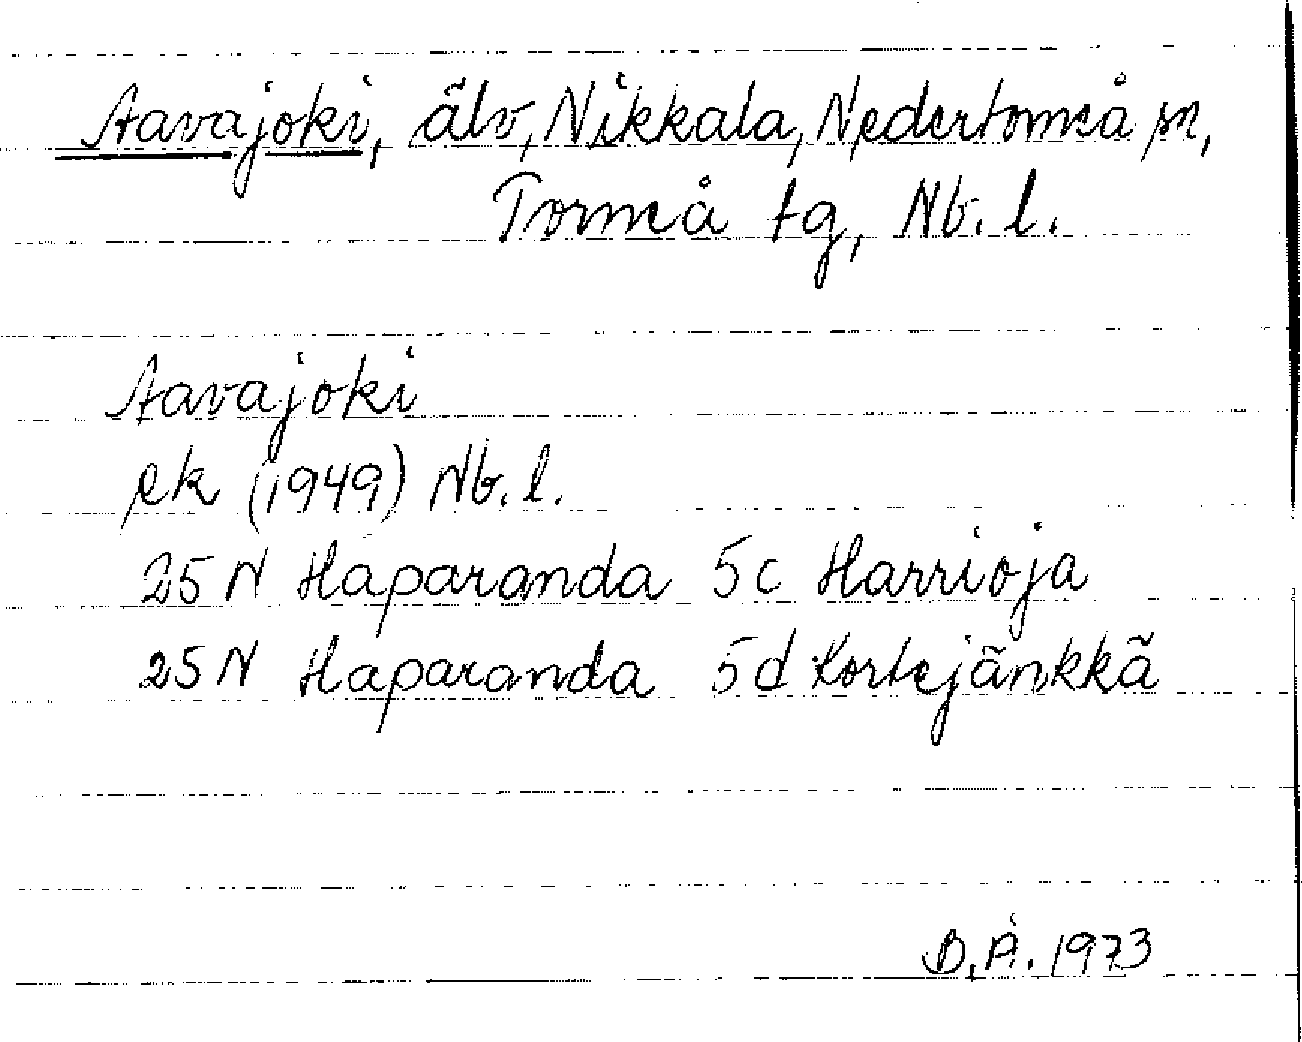 Aavajoki, älv, Nikkala, Nedertorneå sn,
Torneå tg, Nb. l.
Aavajoki
ek (1949) Nb. l.
25 N Haparanda 5c Harrioja
25 N Haparanda 5d Kortejänkkä
B.Å. 1973